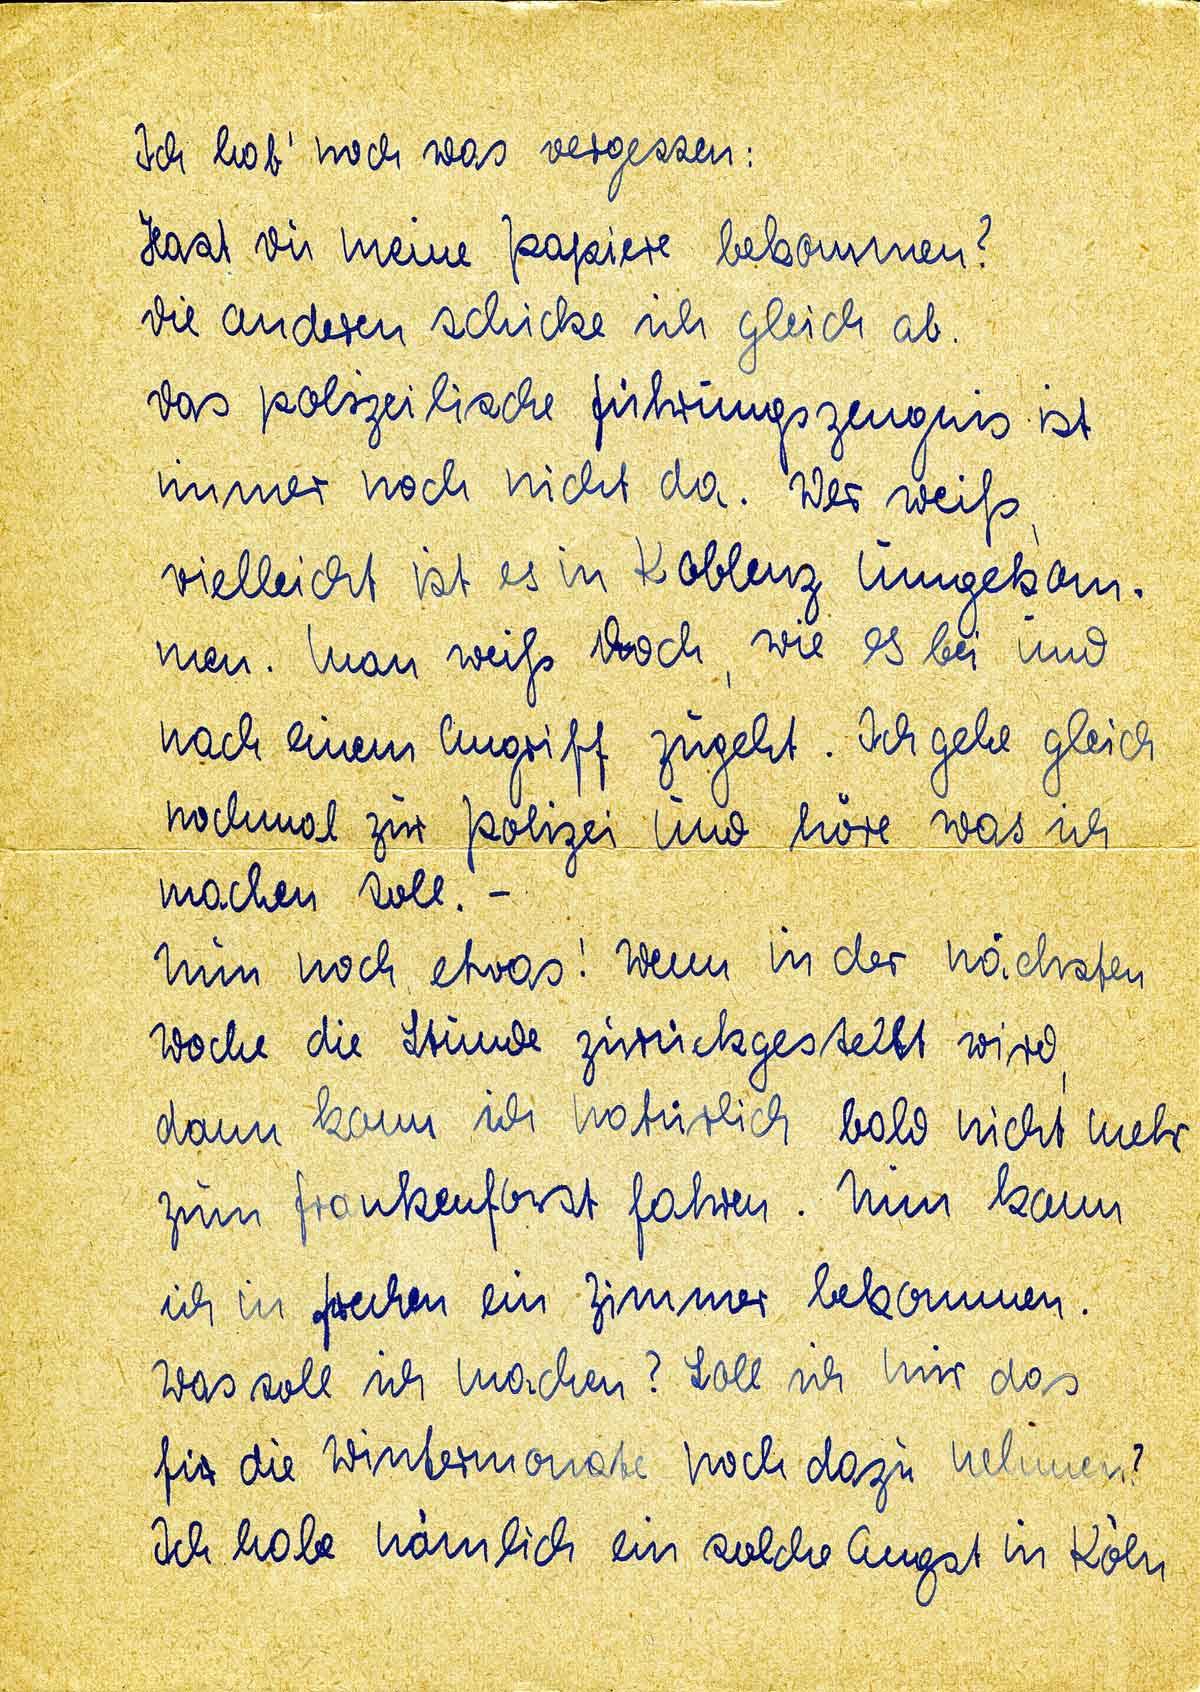 Ich hab' noch was vergessen:
Hast du meine Papiere bekommen?
Die anderen schicke ich gleich ab.
Das polizeiliche Führungszeugnis ist
immer noch nicht da. Wer weiß,
vielleicht ist es in Koblenz umgekom-
men. Man weiß doch, wie es bei und
nach einem Angriff zugeht. Ich gehe gleich
nochmal zur Polizei und höre was ich
machen soll. –
Nun noch etwas! Wenn in der nächsten
Woche die Stunde zurückgestellt wird,
dann kann ich natürlich bald nicht mehr
zum Frankenforst fahren. Nun kann
ich in Frechen ein Zimmer bekommen.
Was soll ich machen? Soll ich mir das
für die Wintermonate noch dazu nehmen?
Ich habe nämlich ein solche Angst in Köln